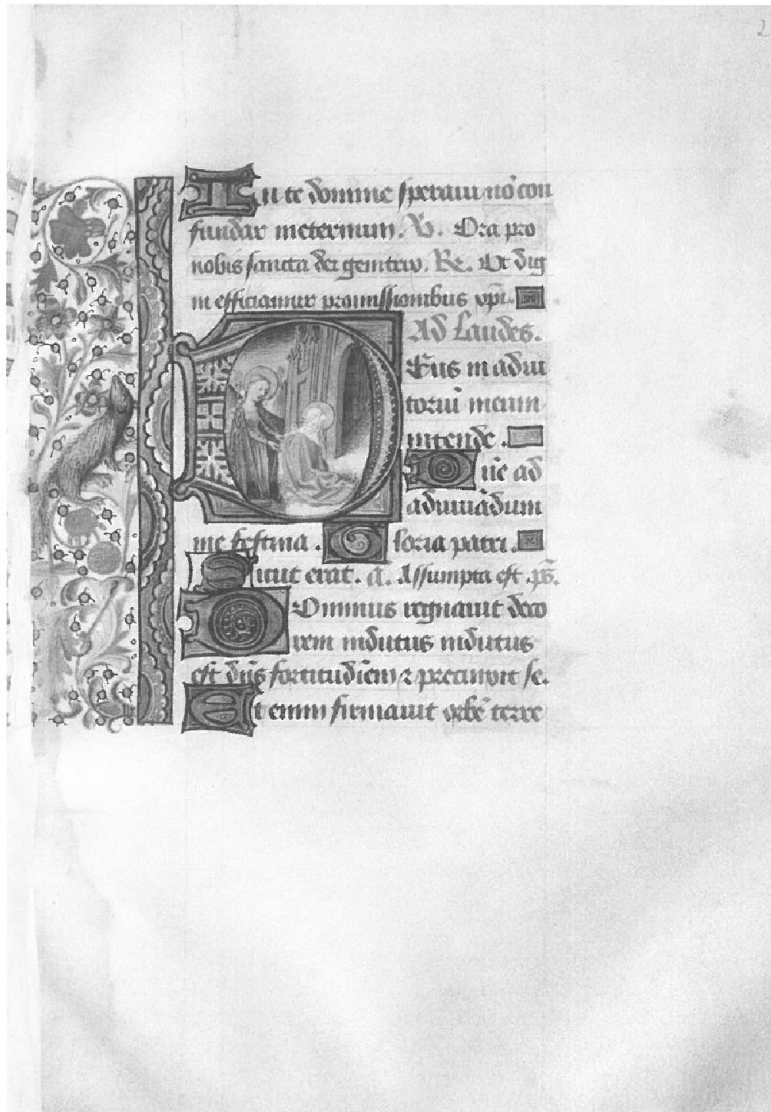 In te domine speravi nō con
fundar ineternum. V. Ora pro
nobis sancta dei genitrix. Re. Ut dig
ni efficiamur promissionibus xpi.
Ad laudes.
Deus in adiu
toriū meum
intende.
Dñe ad
adiuvādum
me festina. Gloria patri.
Sicut erat. a. Assumpta est. ps.
Dominus regnavit deco
rem indutus indutus
est dñs fortitudiēm ⁊ precinxit se.
Et enim firmavit orbē terre